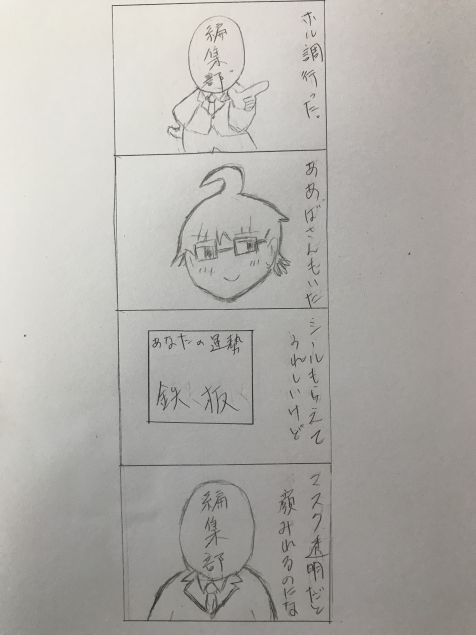 ホル調行った。
編集部
ああ、ばさんもいた
シールもらえて
うれしいけど
あなたの運勢
鉄板
マスク透明だと
顔みれるのにな
編集部